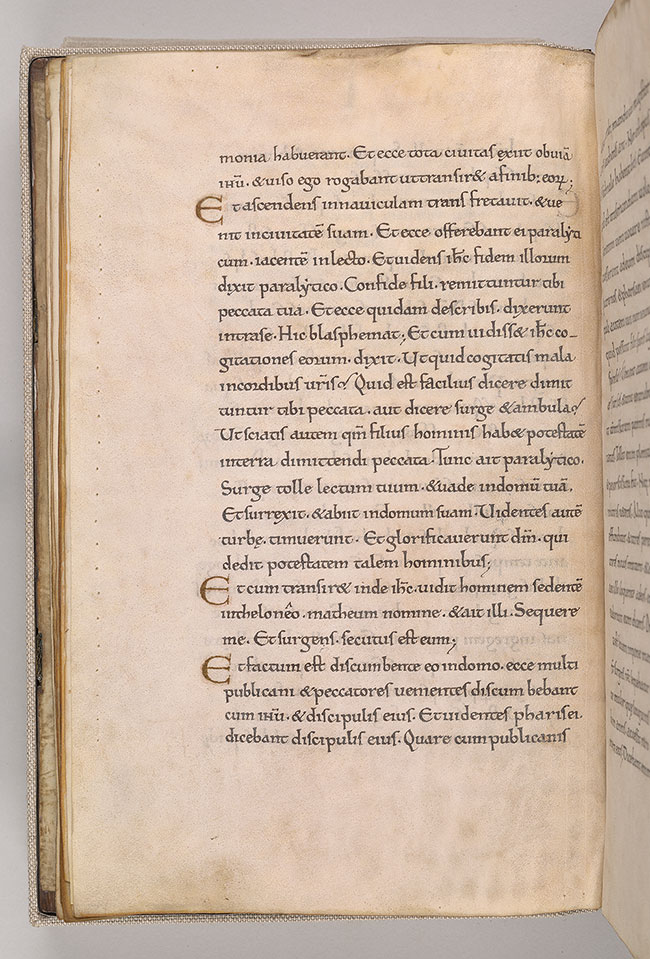 monia habuerant. Et ecce tota ciuitas exiit obuiā
ihū. & uiso ego rogabant ut transir& a finib; eoꝝ;
Et ascendens in nauiculam trans fretauit. & ue
nit in ciuitatē suam. Et ecce offerebant ei paralyti
cum. iacentē in lecto. Et uidens ihc̄ fidem illorum
dixit paralytico. Confide fili. remittuntur tibi
peccata tua. Et ecce quidam de scribis. dixerunt
intra se. Hic blasphemat; Et cum uidiss& ihc̄ co
gitationes eorum. dixit. Ut quid cogitatis mala
in cordibus ur̄is? Quid est facilius dicere dimit
tuntur tibi peccata. aut dicere surge & ambula?
Ut sciatis autem qm̄ filius hominis hab& potestatē
in terra dimittendi peccata. Tunc ait paralytico.
Surge tolle lectum tuum. & uade in domū tuā.
Et surrexit. & abiit in domum suam. Uidentes autē
turbę. timuerunt. Et glorificauerunt dm̄. qui
dedit potestatem talem hominibus;
Et cum transir& inde ihc̄. uidit hominem sedentē
in theloneo. matheum nomine. & ait illi. Sequere
me. Et surgens. secutus est eum;
Et factum est discumbente eo in domo. ecce multi
publicani & peccatores uenientes discumbebant
cum ihū. & discipulis eius. Et uidentes pharisei.
dicebant discipulis eius. Quare cum publicanis